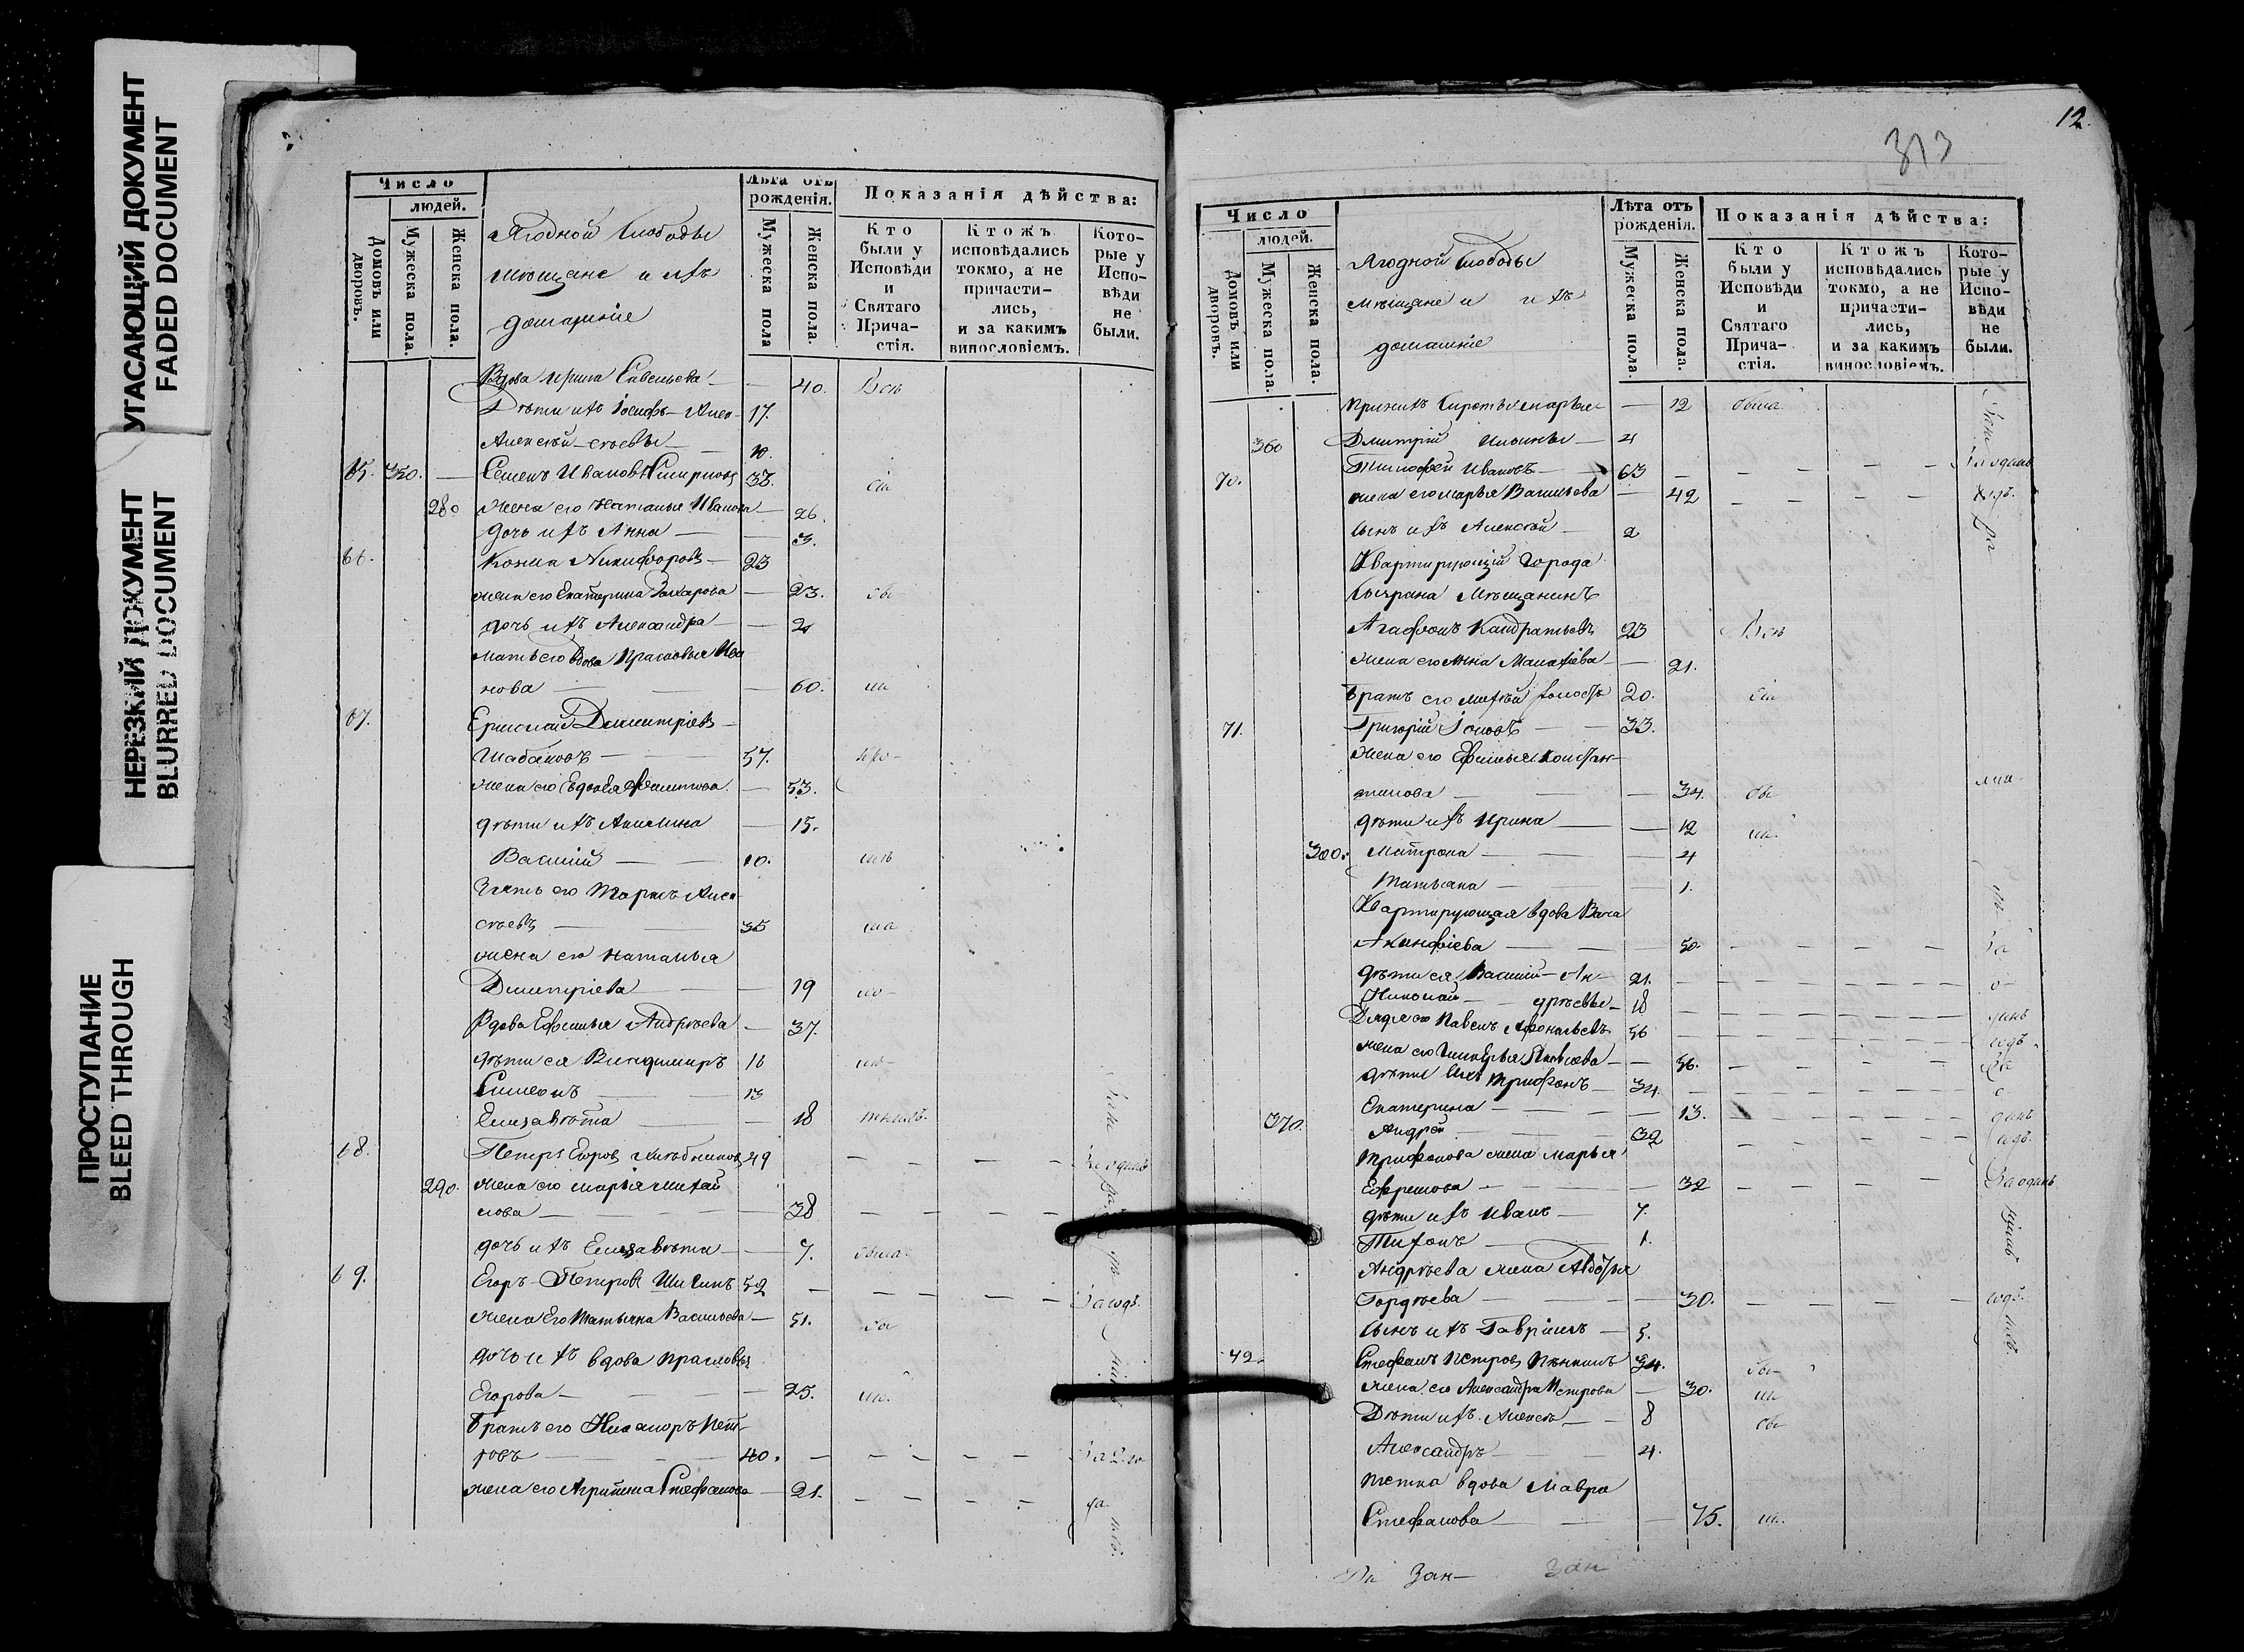 УГАСАЮЩИЙ ДОКУМЕНТ
FADED DOCUMENT
НЕРЕЗКИЙ ДОКУМЕНТ
BLURRED DOCUMENT
ПРОСТУПАНИЕ
BLEED THROUGH
Число
людей.
Домовъ или дворовъ.
Мужеска пола.
Женска пола.
Ягодной Слободы
мѣщане и ихъ
домашніе
Лѣта отъ рожденія.
Мужеска пола
Женска пола.
Показанія дѣйства:
Кто были у Исповѣди и Святаго Прича-стія.
Ктожъ исповѣдались токмо, а не причасти-лись, и за какимъ винословіемъ.
Кото-рые у Испо-вѣди не были.
Вдова Ирина Савельева — 40. Всѣ
Дѣти ихъ Іосифъ Алек- 17.
Алексѣй -сѣевы 10.
65. 350. Семенъ Ивановъ Смирновъ 33.
280 жена его Наталья Иванова 26.
дочь ихъ Анна — 3.
66. Козма Никифоровъ — 23
жена его Екатерина Захарова — 23. бы
дочь ихъ Александра — 2
мать его вдова Прасковья Ива
нова — 60. ла
67. Ермолай Димитріевъ
Шабановъ — 57.
жена его Евдокія Филипова — 53.
дѣти ихъ Акилина — 15.
Василій — 10.
Зять его Маркъ Алек
сѣевъ — 35
жена его Наталья
Дмитріева — 19
Вдова Ефимья Андрѣева — 37.
дѣти ея Владимиръ 16
Симеонъ 13
Елизавѣта — 18
68. Петръ Егоровъ Хлѣбниковъ 49
290. жена его Марья Михай
лова — 38
дочь ихъ Елизавѣта — 7. была
69. Егоръ Петровъ Шихинъ 52
жена Его Татьяна Васильева — 51.
дочь ихъ вдова Прасковья
Егорова — 25.
братъ его Никаноръ Пет-
ровъ — 40.
жена его Агрипина Стефанова — 21.
12.
313
Число
людей.
Домовъ или дворовъ.
Мужеска пола.
Женска пола.
Ягодной Слободы
мѣщане и ихъ
домашніе
Лѣта отъ рожденія.
Мужеска пола.
Женска пола.
Показанія дѣйства:
Кто были у Исповѣди и Святаго Прича-стія.
Ктожъ исповѣдались токмо, а не причасти-лись, и за какимъ винословіемъ.
Кото-рые у Испо-вѣди не были.
при нихъ сироты Марья — 12 была
360 Дмитрій Ильины — 4
70. Тимофей Ивановъ — 63
жена его Марья Васильева — 42
сынъ ихъ Алексѣй — 2
Квартирующій города
Сызрана Мѣщанинъ
Агафонъ Кандратьевъ 23 Всѣ
жена его Анна Малахіева — 21.
братъ его Михѣй холостъ 20.
71. Григорій Іоновъ — 33.
жена его Ефимья Констан-
тинова — 34. бы
дѣти ихъ Ирина — 12
300. Матрона — 4
Татьяна — 1.
Квартирующая вдова Васа
Акинфіева — 50.
дѣти ея Василій Ан- 21.
Николай -дрѣевы 18
Дядя его Павелъ Афонасьевъ 56
жена его Гликерья Яковлева — 56.
дѣти ихъ Трифонъ — 34.
Екатерина — 13.
370. Андрей — 32
Трифонова жена Марья
Ефремова — 32 За однимъ
дѣти ихъ Иванъ — 7.
Тихонъ — 1.
Андрѣева жена Авдотья
Гордѣева — 30.
сынъ ихъ Гавріилъ — 5.
72. Стефанъ Петровъ Пѣнкинъ 34.
жена его Александра Петрова — 30. ли
Дѣти ихъ Алексѣй — 8
Александръ — 4.
тетка вдова Мавра
Стефанова — 75.
Зан- зан